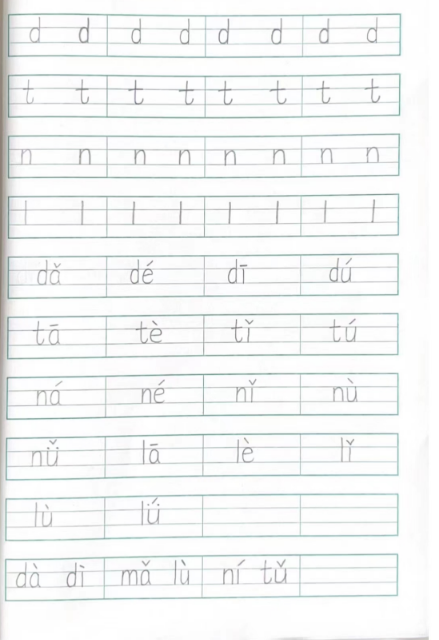 d d d d d d d d
t t t t t t t t
n n n n n n n n
l l l l l l l l
dǎ dé dī dú
tā tè tǐ tú
ná né nǐ nù
nǚ lā lè lǐ
lù lǘ
dà dì mǎ lù ní tǔ